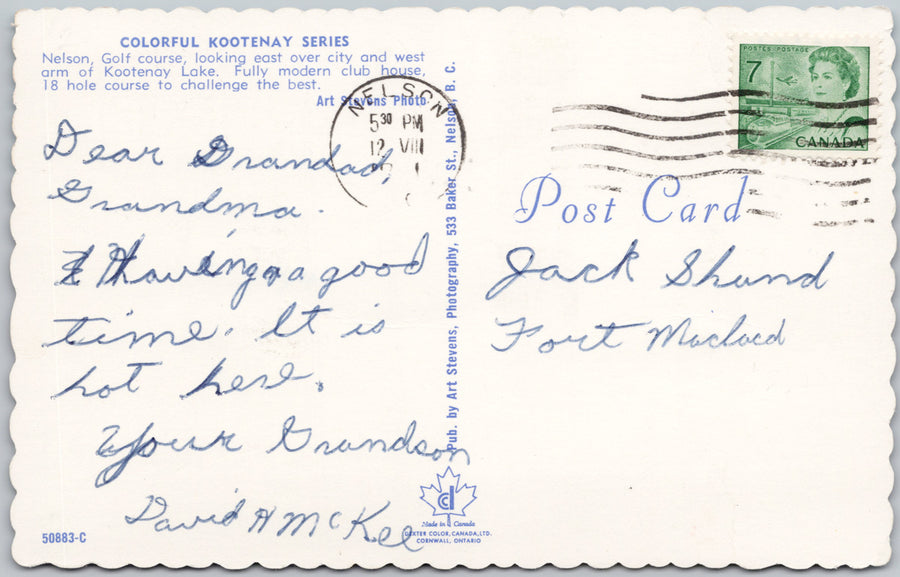 COLORFUL KOOTENAY SERIES
Nelson, Golf course, looking east over city and west
arm of Kootenay Lake. Fully modern club house,
18 hole course to challenge the best.
Art Stevens Photo.
Dear Grandad,
Grandma.
having a good
time. It is
hot here.
Your Grandson
David H McKee
50883-C
Pub. by Art Stevens, Photography, 533 Baker St., Nelson, B. C.
Made in Canada
DEXTER COLOR, CANADA, LTD.
CORNWALL, ONTARIO
NELSON
5 30 PM
12 VIII
POSTES-POSTAGE
7
CANADA
Post Card
Jack Shund
Fort Macleod